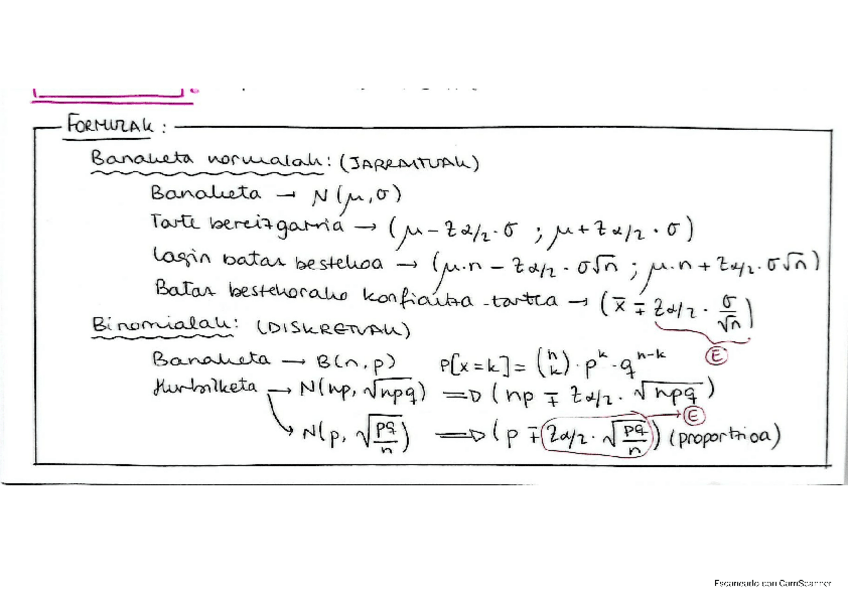 FORMULAK:
Banaketa normalak: (JARRAITUAK)
Banaketa → N(μ,σ)
Tarte bereizgarria → (μ - Zα/2 · σ ; μ + Zα/2 · σ)
Lagin batar bestekoa → (μ·n - Zα/2 · σ√n ; μ·n + Zα/2 · σ√n)
Batar bestekorako konfiantza-tartea → (x̄ ∓ Zα/2 · σ/√n)
E
Binomialak: (DISKRETUAK)
Banaketa → B(n,p) P[x=k] = (n k) · p^k · q^(n-k)
Hurbilketa → N(np, √npq) ⇒ (np ∓ Zα/2 · √npq)
E
N(p, √(pq/n)) ⇒ (p ∓ Zα/2 · √(pq/n)) (proportzioa)
Escaneado con CamScanner